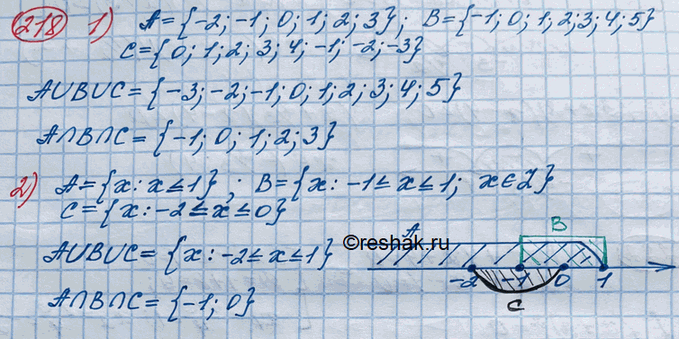 218 1) A = {-2; -1; 0; 1; 2; 3}; B = {-1; 0; 1; 2; 3; 4; 5}
C = {0; 1; 2; 3; 4; -1; -2; -3}
A∪B∪C = {-3; -2; -1; 0; 1; 2; 3; 4; 5}
A∩B∩C = {-1; 0; 1; 2; 3}
2) A = {x: x ≤ 1}; B = {x: -1 ≤ x ≤ 1; x ∈ Z}
C = {x: -2 ≤ x ≤ 0}
A∪B∪C = {x: -2 ≤ x ≤ 1}
A∩B∩C = {-1; 0}
A B
©reshak.ru
-2 -1 0 1
C